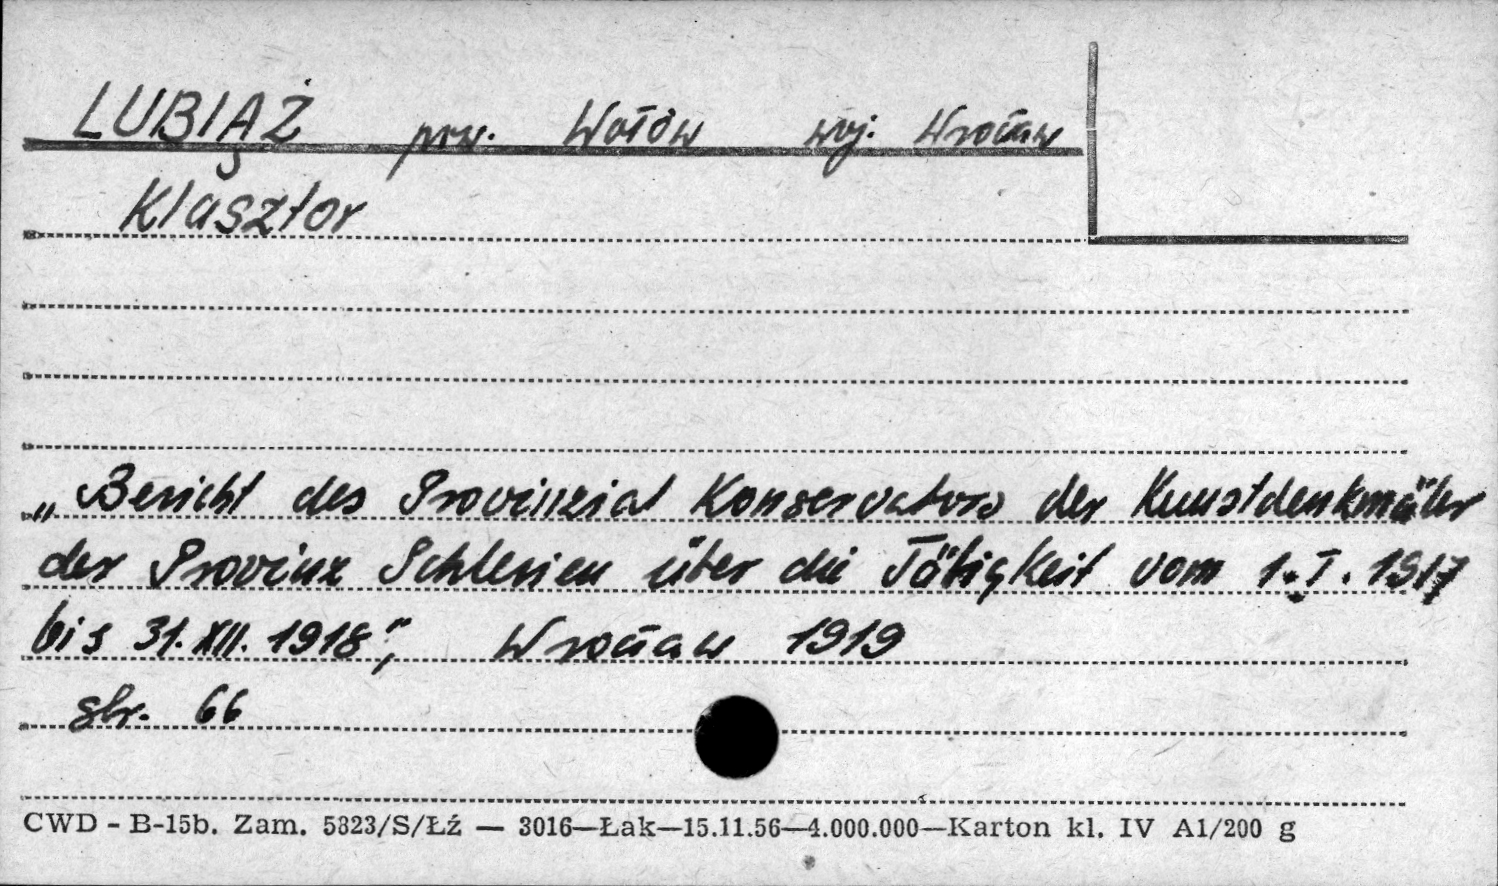 LUBIĄŻ pow. Wołów woj. Wrocław
Klasztor
„Bericht des Provinzial Konservators der Kunstdenkmäler
der Provinz Schlesien über die Tätigkeit vom 1.I.1917
bis 31.XII.1918", Wrocław 1919
str. 66
CWD - B-15b. Zam. 5823/S/Łź — 3016—Łak—15.11.56—4.000.000—Karton kl. IV A1/200 g